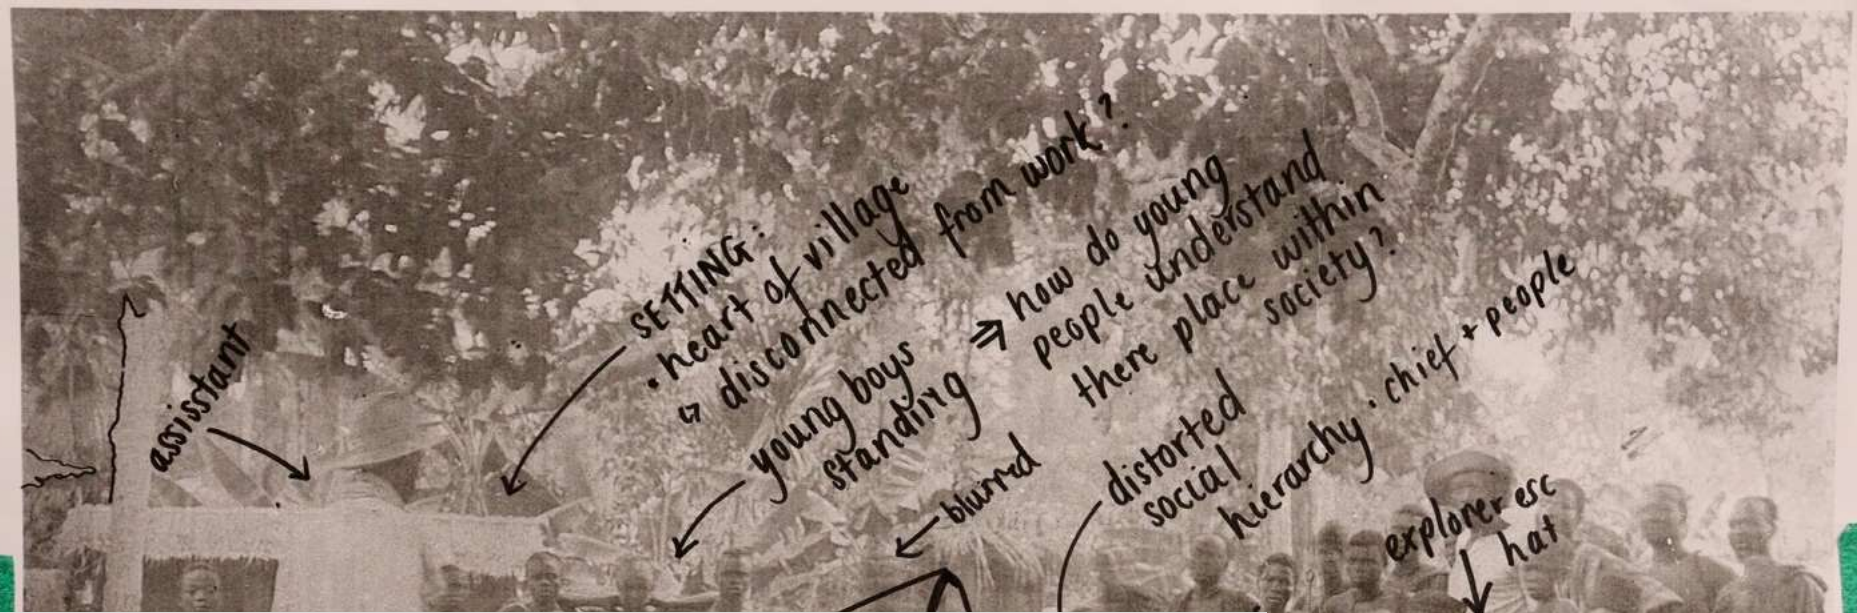 assisstant
SETTING:
• heart of village
↳ disconnected from work?
young boys
standing
⇒ how do young
people understand
there place within
society?
blurred
distorted
social
hierarchy • chief + people
explorer esc
hat